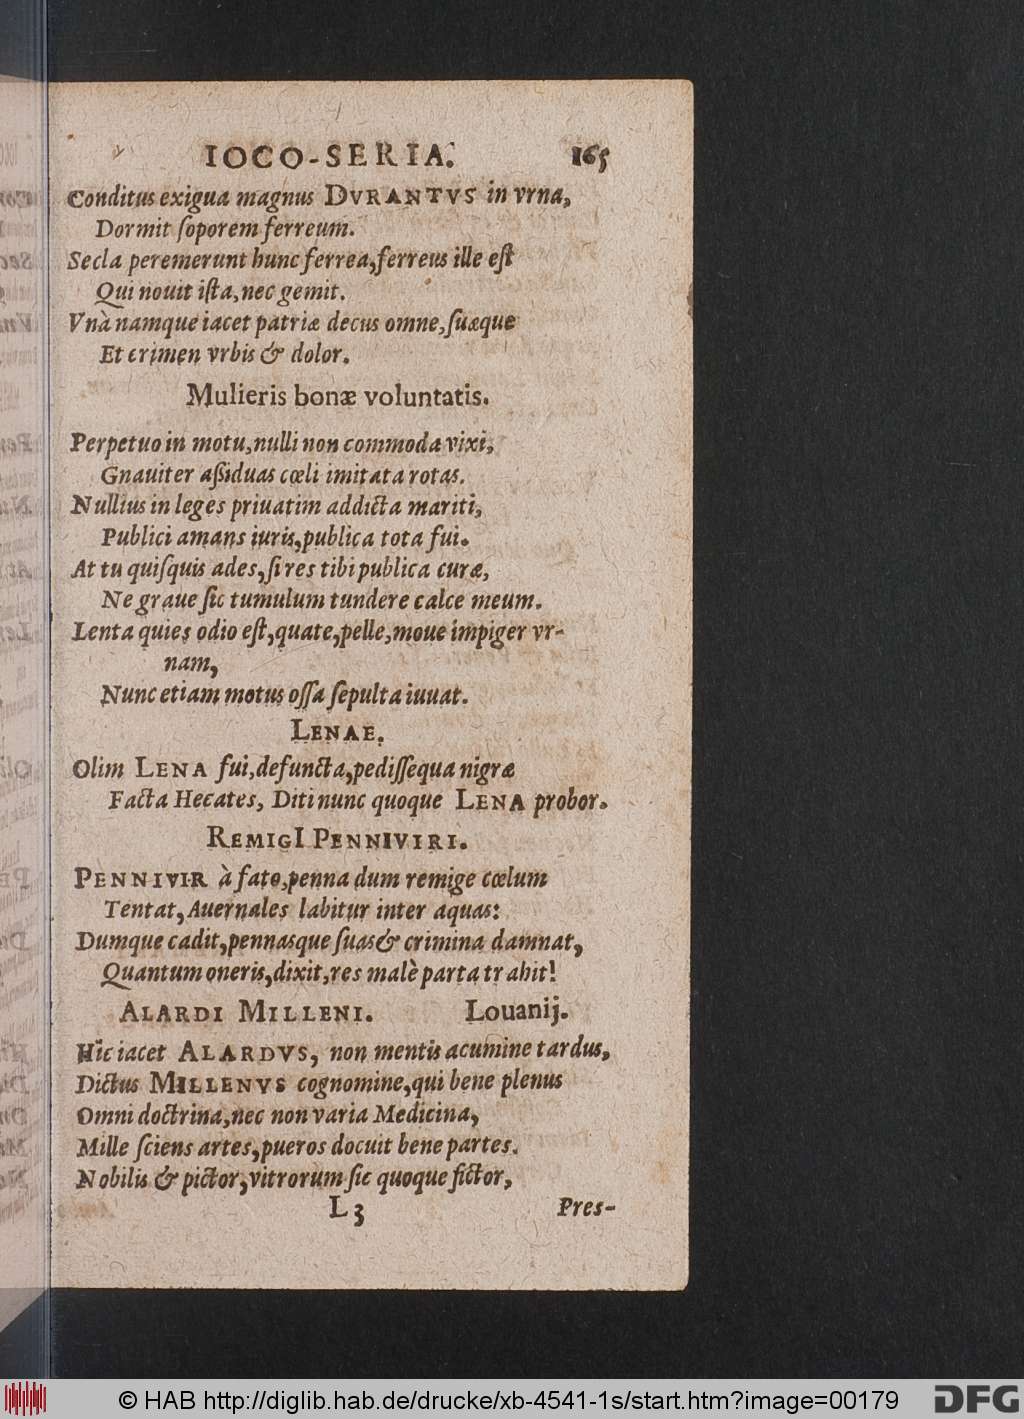 IOCO-SERIA. 165
Conditus exigua magnus DVRANTVS in vrna,
Dormit ſoporem ferreum.
Secla peremerunt hunc ferrea, ferreus ille eſt
Qui nouit iſta, nec gemit.
Vnà namque iacet patriæ decus omne, ſuæque
Et crimen vrbis & dolor.
Mulieris bonæ voluntatis.
Perpetuo in motu, nulli non commoda vixi,
Gnauiter aßiduas cœli imitata rotas.
Nullius in leges priuatim addicta mariti,
Publici amans iuris, publica tota fui.
At tu quiſquis ades, ſi res tibi publica curæ,
Ne graue ſic tumulum tundere calce meum.
Lenta quies odio eſt, quate, pelle, moue impiger vr-
nam,
Nunc etiam motus oſſa ſepulta iuuat.
LENAE.
Olim LENA fui, defuncta, pediſſequa nigræ
Facta Hecates, Diti nunc quoque LENA probor.
REMIGI PENNIVIRI.
PENNIVIR à fato, penna dum remige cœlum
Tentat, Auernales labitur inter aquas:
Dumque cadit, pennasque ſuas & crimina damnat,
Quantum oneris, dixit, res malè parta trahit!
ALARDI MILLENI. Louanij.
Hic iacet ALARDVS, non mentis acumine tardus,
Dictus MILLENVS cognomine, qui bene plenus
Omni doctrina, nec non varia Medicina,
Mille ſciens artes, pueros docuit bene partes.
Nobilis & pictor, vitrorum ſic quoque fictor,
L 3 Pres-
© HAB http://diglib.hab.de/drucke/xb-4541-1s/start.htm?image=00179
DFG